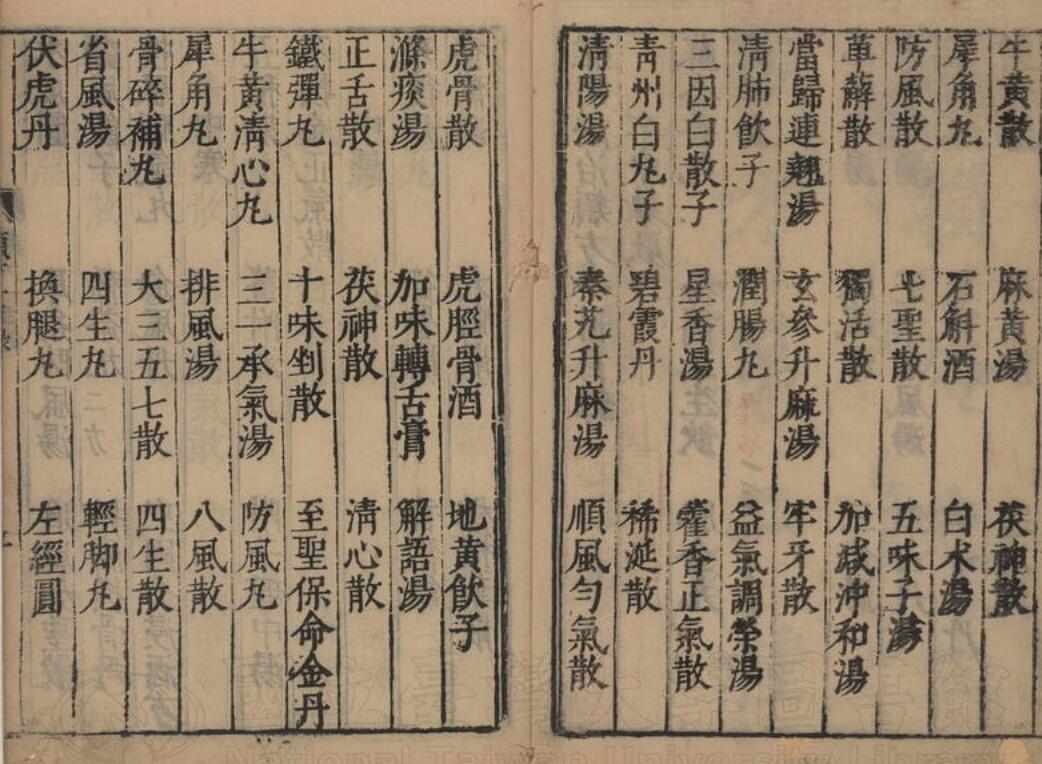 牛黃散 麻黃湯 茯神散
犀角丸 石斛酒 白术湯
防風散 七聖散 五味子湯
萆薢散 獨活散 加減沖和湯
當歸連翹湯 玄參升麻湯 牢牙散
淸肺飲子 潤腸丸 益氣調榮湯
三因白散子 星香湯 藿香正氣散
靑州白丸子 碧霞丹 稀涎散
淸陽湯 秦艽升麻湯 順風勻氣散
虎骨散 虎脛骨酒 地黃飲子
滌痰湯 加味轉舌膏 解語湯
正舌散 茯神散 淸心散
鐵彈丸 十味剉散 至聖保命金丹
牛黃淸心丸 三一承氣湯 防風丸
犀角丸 排風湯 八風散
骨碎補丸 大三五七散 四生散
省風湯 四生丸 輕脚丸
伏虎丹 換腿丸 左經圓
National Taiwan University Library